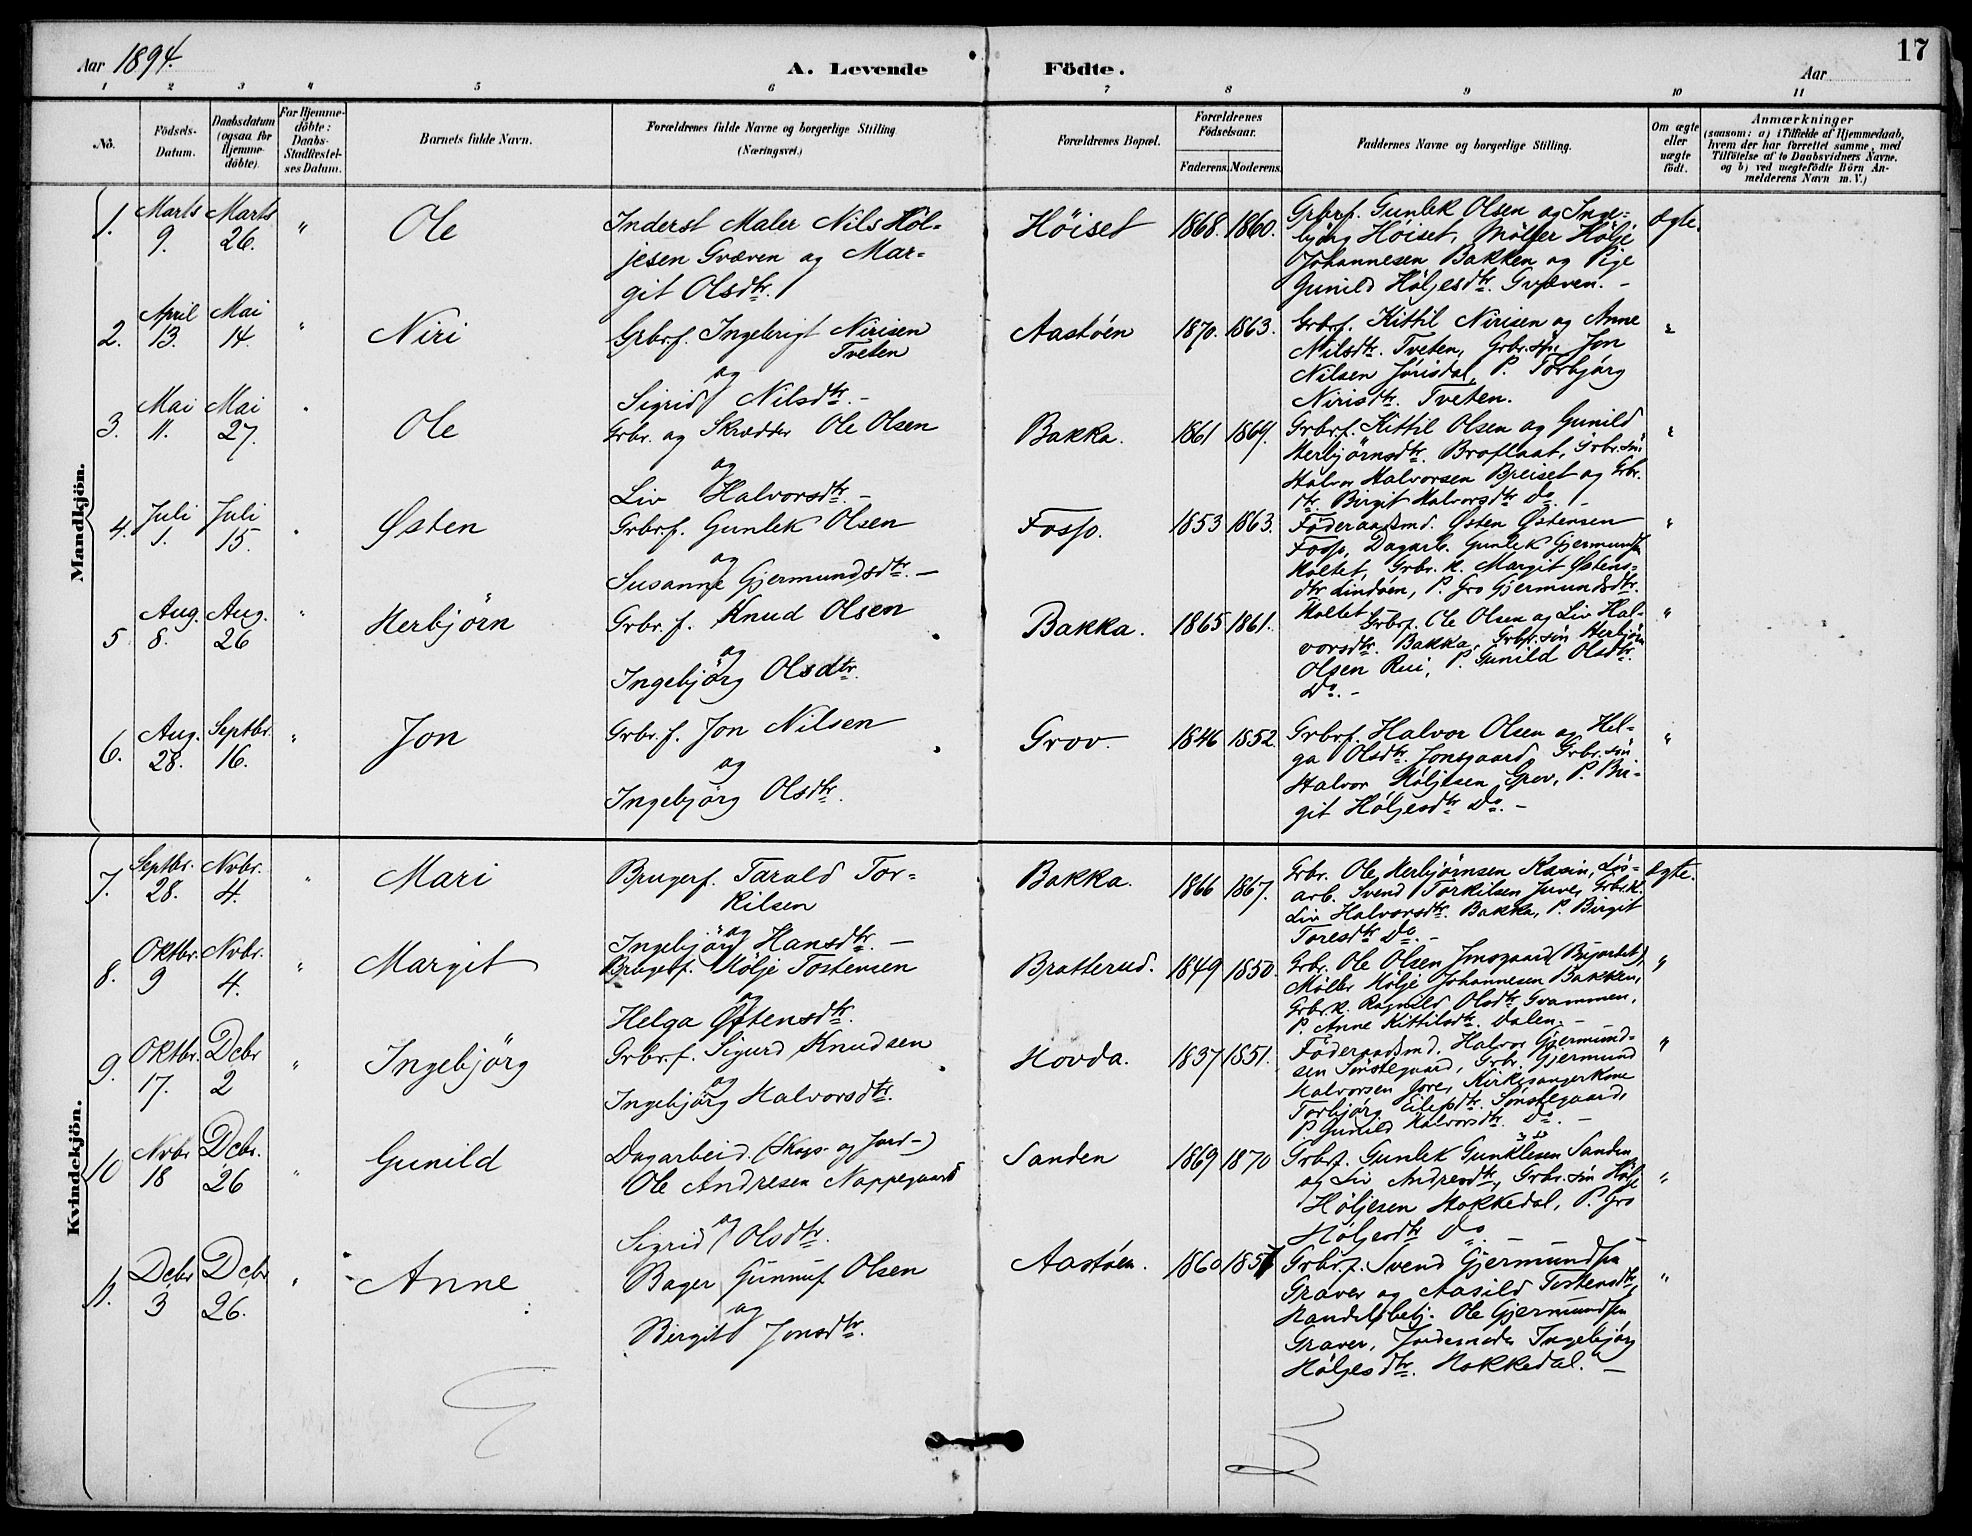 Aar 1894.
A. Levende Födte.
17
Aar
1 2 3 4 5 6 7 8 9 10 11
No.
Födsels-Datum.
Daabsdatum (ogsaa for Hjemme-döbte).
For Hjemme-döbte: Daabs-Stadfæstel-ses Datum.
Barnets fulde Navn.
Forældrenes fulde Navne og borgerlige Stilling (Næringsvei.)
Forældrenes Bopæl.
Forældrenes Födselsaar.
Faderens. Moderens.
Faddernes Navne og borgerlige Stilling.
Om ægte eller uægte födt.
Anmærkninger
(saasom: a) i Tilfælde af Hjemmedaab, hvem der har forrettet samme, med Tilföielse af to Daabsvidners Navne. og b) ved uegtefödte Börn An-melderens Navn m. V.)
Mandkjön.
1. Marts 9. Marts 26. " Ole
Inderst Maler Nils Höl-
jesen Gvæven og Mar-
git Olsdtr.
Höiset 1868. 1860.
Grbrf. Gunlek Olsen og Inge-
björg Höiset, Möller Hölje
Johannesen Bakken og Pige
Gunild Höljesdtr. Gvæven. -
Ægte.
2. April 13. Mai 14. " Niri
Grbrf. Ingebrigt Nirisen
Tveten
og
Sigrid Nilsdtr. -
Aastöen 1870. 1863.
Grbrf. Kittil Nirisen og Anne
Nilsdtr. Tveten, Grbr. sön Jon
Nilsen Jörisdal, P. Torbjörg
Nirisdtr. Tveten.
"
3. Mai 11. Mai 27. " Ole
Grbr. og Skrædder Ole Olsen
og
Liv Halvorsdtr. -
Bakka. 1861 1869.
Grbrf. Kittil Olsen og Gunild
Herbjörnsdtr. Broflaat, Grbr. sön
Halvor Halvorsen Breiset og Grbr.
dtr. Birgit Halvorsdtr Do -
"
4. Juli 1. Juli 15. " Østen
Grbr.f. Gunlek Olsen
og
Susanne Gjermundsdtr. -
Fosso. 1853 1863.
Föderaadsmd. Østen Østensen
Fosso, Dagarb. Gunlek Gjermundsen
Holtet, Grbr. k. Margit Østens-
dtr Lindöen, P. Gro Gjermundsdtr.
Holtet
"
5 Aug. 8. Aug. 26 " Herbjörn
Grbr. f. Knud Olsen
og
Ingebjörg Olsdtr.
Bakka. 1865 1861.
Grbrf. Ole Olsen og Liv Hal-
vorsdtr. Bakka, Grbr. sön Herbjörn
Olsen Rui, P. Gunild Olsdtr.
Do. -
"
6. Aug. 28. Septbr. 16. " Jon
Grbr. f. Jon Nilsen
og
Ingebjörg Olsdtr.
Grov. 1846 1852
Grbrf. Halvor Olsen og Hel-
ga Olsdtr. Jonsgaard, Grbr. sön
Halvor Höljesen Grov, P. Bir-
git Höljesdtr Do. -
"
Kvindekjön.
7. Septbr. 28. Nvbr. 4. " Mari
Brugerf. Tarald Tor-
kilsen
og
Ingebjörg Hansdtr. -
Bakka. 1866 1867.
Grbr. Ole Herbjörnsen Kasin, Lös-
arb. Svend Torkilsen Juve, Grbr. k.
Liv Halvorsdtr. Bakka, P. Birgit
Toresdtr Do. -
Ægte.
8. Oktbr. 9 Nvbr. 4. " Margit
Brugerf. Hölje Tostensen
og
Helga Østensdtr.
Bratterud. 1849 1850.
Grbr. Ole Olsen Jonsgaard
Möller Hölje Johannesen Bakken,
Grbr. k. Ragnild Olsdtr Gvammen,
P. Anne Kittilsdtr. Dalen. -
"
9. Oktbr. 17. Dcbr 2 " Ingebjörg
Grbr.f. Sigurd Knudsen
og
Ingebjörg Halvorsdtr.
Hovda. 1837 1851.
Föderaadsmd. Halvor Gjermund-
sen Sönstegaard, Grbr. Gjermund
Halvorsen Jore, Kirkesangerkone
Torbjörg Eilefsdtr. Sönstegaard,
P Gunild Halvorsdtr. Do. -
"
10 Nvbr 18 Dcbr. 26 " Gunild
Dagarbeid. (Skogs- og Jord-)
Ole Andresen Nappegaard
og
Sigrid Olsdtr.
Sanden 1869 1870
Grbrf. Gunlek Gunleksen Sanden
og Liv Andresdtr, Grbr. sön Hölje
Höljesen Hokkedal, P. Gro
Höljesdtr Do. -
"
11. Dcbr 3 Dcbr 26. " Anne
Bager Gunnuf Olsen
og
Birgit Jonsdtr.
Aastöen. 1860 1857
Grbr.f. Svend Gjermundsen
Graver og Aasild Tostensdtr,
Handelsbetj. Ole Gjermundsen
Graver, Jordemoder Ingebjörg
Höljesdtr. Hokkedal. -
"